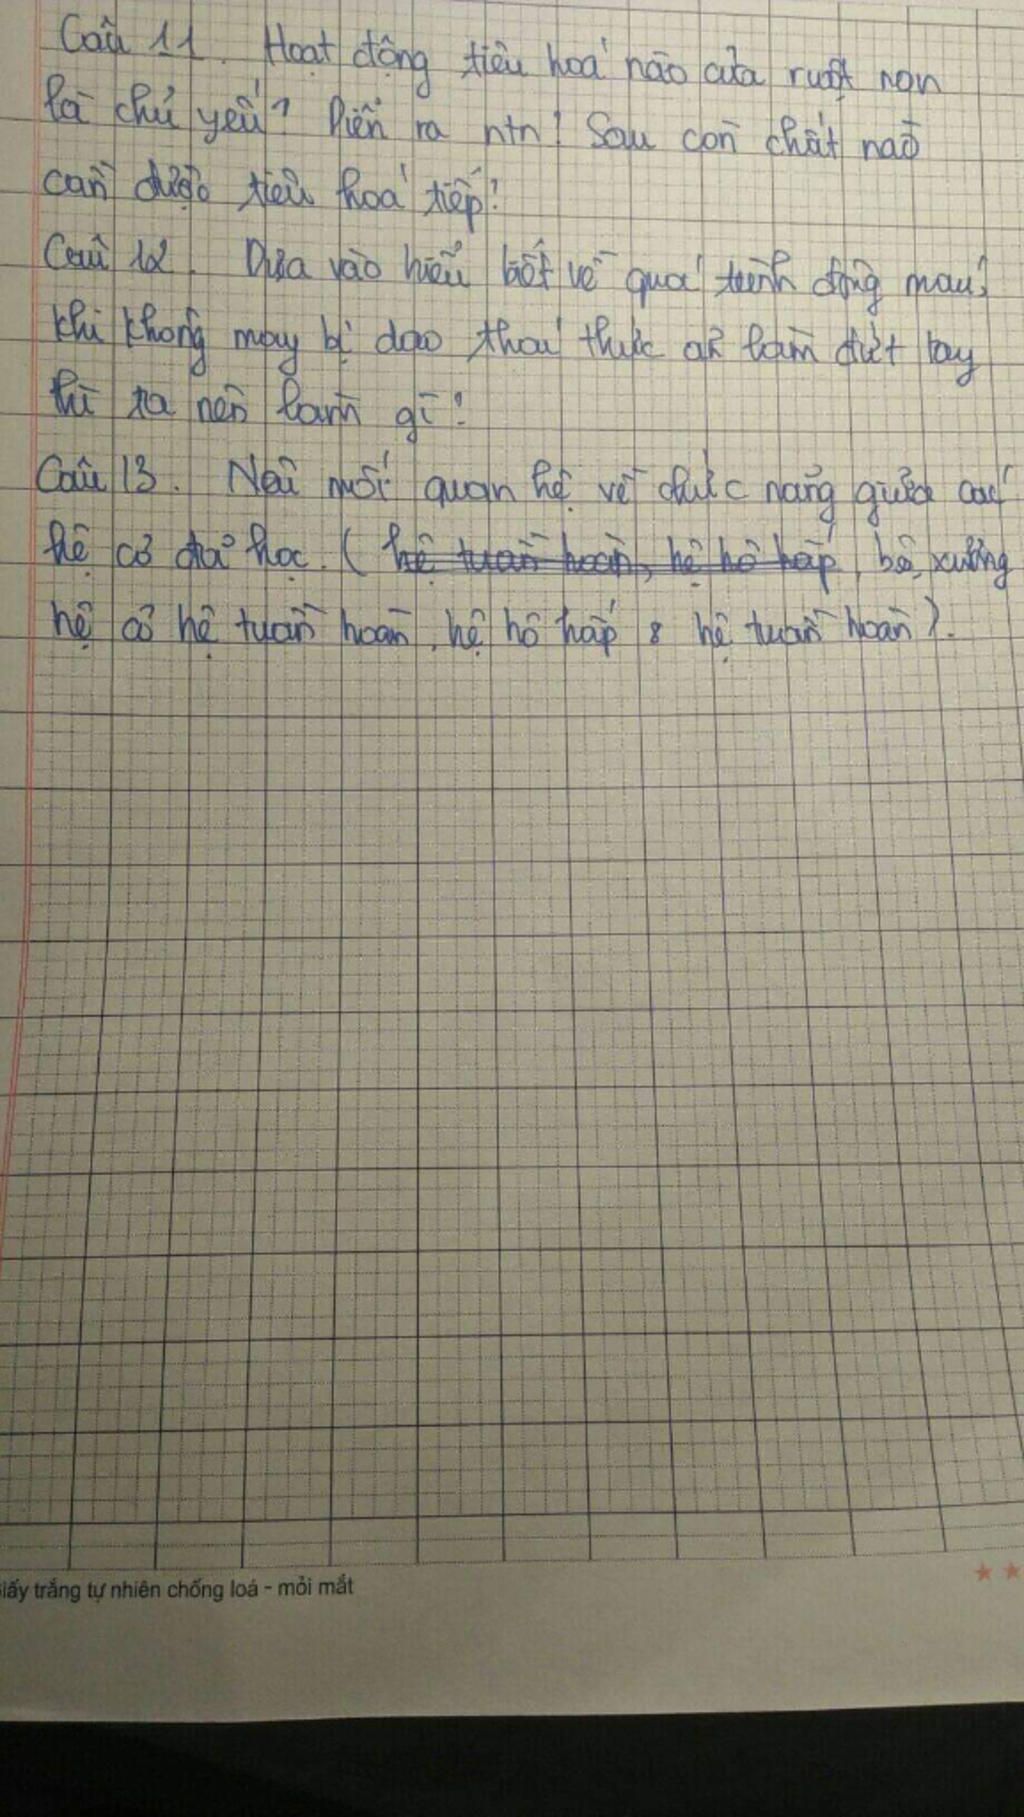 Câu 11. Hoạt động tiêu hoá nào của ruột non
là chủ yếu? Diễn ra ntn? Sau còn chất nào
cần được tiêu hoá tiếp?
Câu 12. Dựa vào hiểu biết về quá trình đông máu,
khi không may bị dao thái thức ăn làm đứt tay
thì ta nên làm gì?
Câu 13. Nêu mối quan hệ về chức năng giữa các
hệ cơ đã học. (hệ tuần hoàn, hệ hô hấp, bộ xương
hệ cơ hệ tuần hoàn, hệ hô hấp & hệ tuần hoàn).
iấy trắng tự nhiên chống loá - mỏi mắt